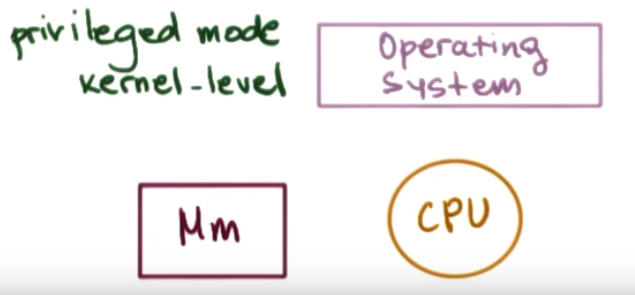 privileged mode
kernel-level
Operating
System
Mm
CPU